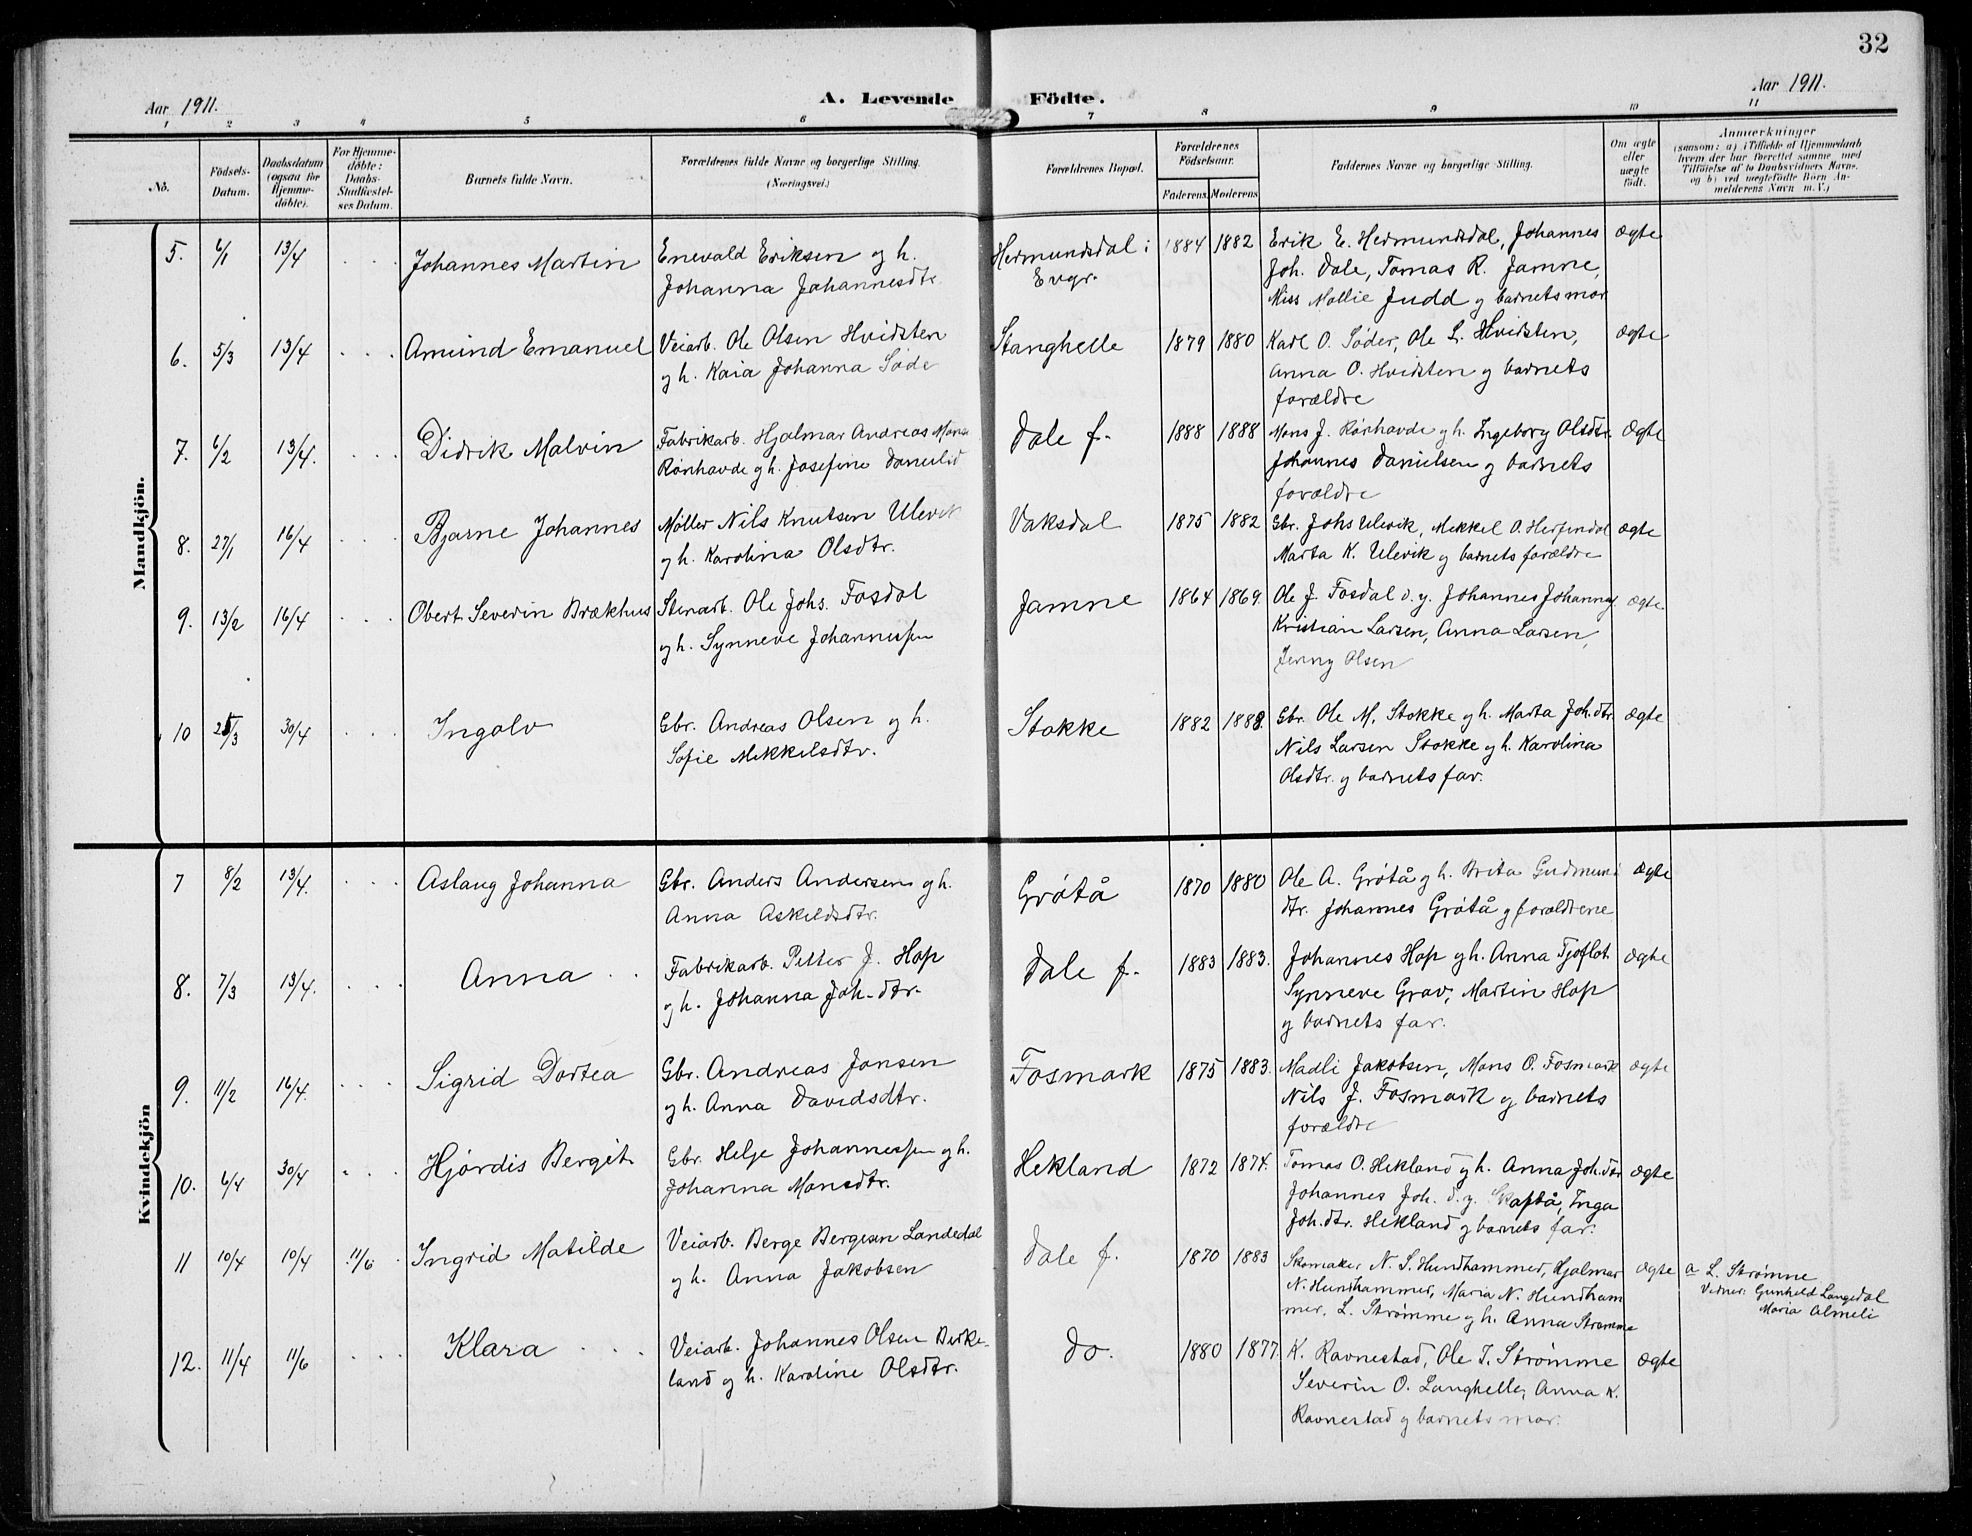 32
Aar 1911.
A. Levende Födte.
Aar 1911.
1 2 3 4 5 6 7 8 9 10 11
No.
Födsels-Datum.
Daabsdatum (ogsaa for Hjemme-döbte).
For Hjemme-döbte: Daabs-Stadfæstel-ses Datum.
Barnets fulde Navn.
Forældrenes fulde Navne og borgerlige Stilling. (Næringsvei.)
Forældrenes Bopæl.
Forældrenes Födselsaar.
Faderens. Moderens
Faddernes Navne og borgerlige Stilling.
Om ægte eller uægte födt.
Anmærkninger
(saasom: a) i Tilfælde af Hjemmedaab
hvem der har forrettet samme med
Tilföielse af to Daabsvidners Navne.
og b) ved uægtefödte Börn An-
melderens Navn m. V.)
Mandkjön.
5. 6/1 13/4 . . . Johannes Martin Enevald Eriksen og h. Hermundsdal i 1884 1882 Erik E. Hermundsdal, Johannes ægte
Johanna Johannesdtr. Evgr. Joh. Dale, Tomas R. Jamne,
Miss Mollie Judd og barnets mor
6. 5/3 13/4 . . . Amund Emanuel Veiarb. Ole Olsen Hvidsten Stanghelle 1879 1880 Karl O. Söder, Ole L. Hvidsten, ægte
og h. Kaia Johanna Söde Anna O. Hvidsten og barnets
forældre
7. 6/2 13/4. . . . Didrik Malvin Fabrikarb. Hjalmar Andreas Mons Dale f. 1888 1888 Mons J. Rönhovde og h. Ingeborg Olsdtr. ægte
Rönhovde og h. Josefine Danielsd Johannes Danielsen og barnets
forældre
8. 27/1 16/4 . . . Bjarne Johannes Möller Nils Knutsen Ulevik Vaksdal 1875 1882 Gbr. Johs Ulevik, Mikkel O. Herfindal ægte
og h. Karolina Olsdtr. Marta K. Ulevik og barnets forældre
9. 13/2 16/4 . . . Obert Severin Brækhus Stenarb. Ole Johs. Fosdal Jamne 1864 1869. Ole J. Fosdal d.y. Johannes Johannes ægte.
og h. Synneve Johannessen Kristian Larsen, Anna Larsen,
Jenny Olsen
10 25/3 30/4 . . . Ingolv Gbr. Andreas Olsen og h. Stokke 1882 1888. Gbr. Ole M. Stokke og h. Marta Joh.dtr ægte
Sofie Mikkelsdtr. Nils Larsen Stokke og h. Karolina
Olsdtr. og barnets far.
Kvindekjön
7 8/2 13/4. . . . Aslaug Johanna Gbr. Anders Andersen og h. Grötå 1870 1880 Ole A. Grötå og h. Brita Gudmund ægte
Anna Askildsdtr. dtr. Johannes Grötå og forældrene
8. 7/3 13/4. . . . Anna . . Fabrikarb. Petter J. Hop Dale f. 1883 1883. Johannes Hop og h. Anna Tjoflot ægte
og h. Johanna Joh.dtr. Synneve Grav, Martin Hop
og barnets far.
9. 11/2 16/4. . . . Sigrid Dortea Gbr. Andreas Jansen Fosmark 1875 1883. Madli Jakobsen, Mons O. Fosmark ægte
og h. Anna Davidsdtr. Nils J. Fosmark og barnets
forældre
10. 6/4 30/4 . . . Hjördis Bergit Gbr. Helje Johannessen og h. Hekland 1872 1874. Tomas O. Hekland og h. Anna Joh.dtr ægte
Johanna Monsdtr. Johannes Joh. d.y. Skaftå, Inga
Joh.dtr. Hekland og barnets far.
11 10/4 10/4 11/6 . Ingrid Matilde Veiarb. Berge Bergesen Landedal Dale f. 1870 1883 Skomaker N. S. Hundhammer, Hjalmar ægte a L. Strömme
og h. Anna Jakobsen N. Hundhammer, Maria N. Hundham Vidner: Gunhild Langedal
mer, L. Strömme og h. Anna Strömme Maria Almeli
12. 11/4 11/6 . . . Klara . . . Veiarb. Johannes Olsen Birke- do. 1880 1877. K. Ravnestad, Ole I. Strömme ægte
land og h. Karoline Olsdtr. Severin O. Langhelle, Anna K.
Ravnestad og barnets mor.